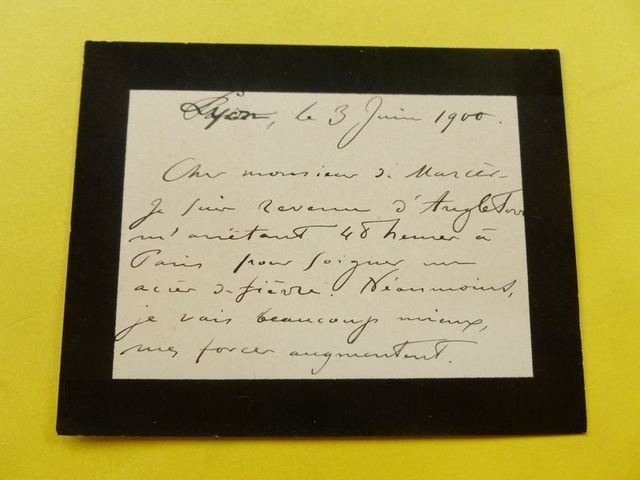 Lyon, le 3 Juin 1900.
Cher monsieur de
Je suis revenu d'Angleterre
m'arrêtant 48 heures à
Paris pour soigner un
accès de fièvre. Néanmoins,
je vais beaucoup mieux,
mes forces augmentent.